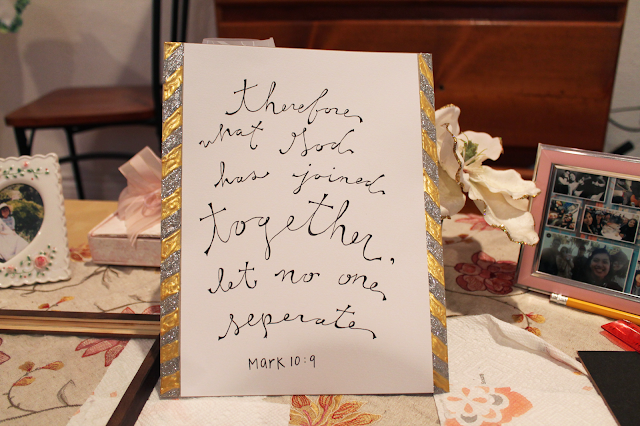 therefore
what God
has joined
together,
let no one
seperate
Mark 10:9